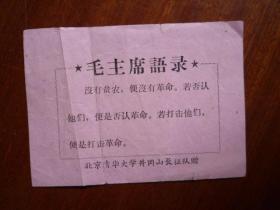 ★毛主席語录★
沒有贫农，便沒有革命。若否认
他们，便是否认革命。若打击他们，
便是打击革命。
北京清华大学井冈山长征队赠